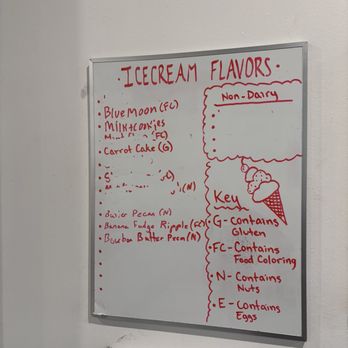 ICECREAM FLAVORS
Blue Moon (FC)
Milk+cookies
(FC)
Carrot Cake (G)
(N)
Pecan (N)
Banana Fudge Ripple (FC)
Bourbon Butter Pecan (N)
Non-Dairy
Key
G- Contains
Gluten
FC- Contains
Food Coloring
N- Contains
Nuts
E- Contains
Eggs